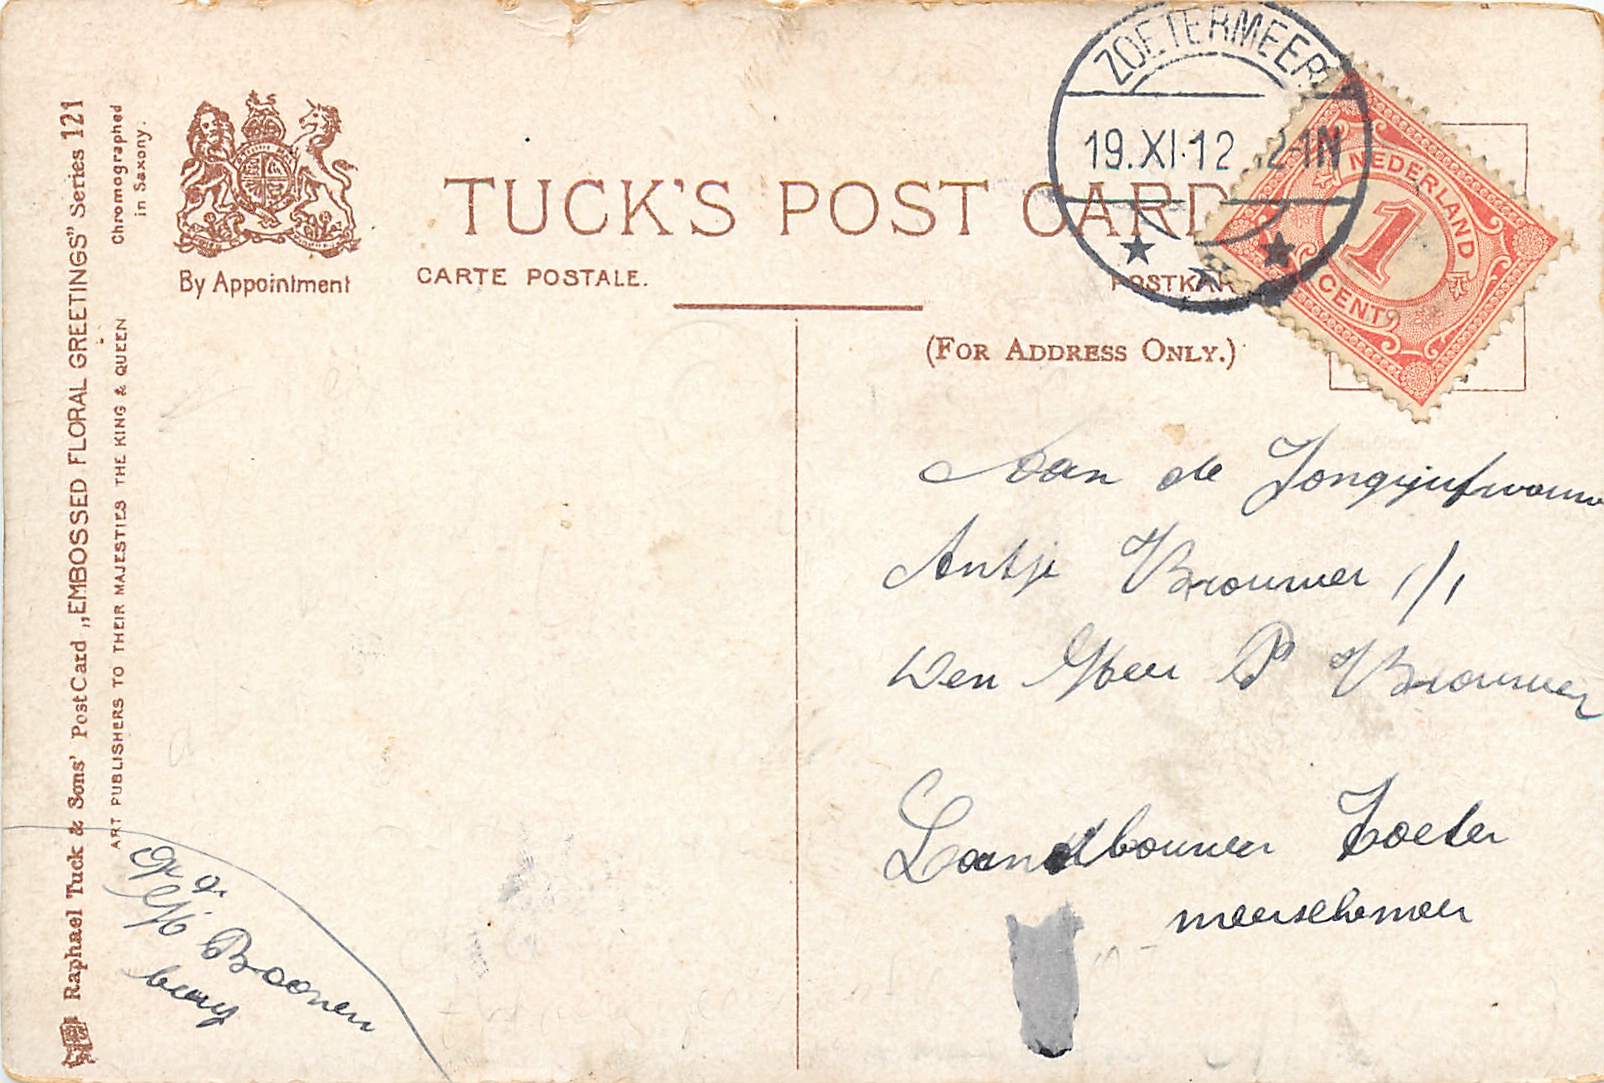 Raphael Tuck & Sons' Post Card „EMBOSSED FLORAL GREETINGS" Series 121
ART PUBLISHERS TO THEIR MAJESTIES THE KING & QUEEN
Chromographed
in Saxony.
By Appointment
TUCK'S POST CARD
CARTE POSTALE.
POSTKAR
(FOR ADDRESS ONLY.)
ZOETERMEER
19.XI.12 12-1N
NEDERLAND
1
CENT
Aan de Jongejufvrouw
Antje Brouwer 1/1
Den Heer P Brouwer
Landbouwer Zoeter
meerschemeer
Boonen
burg